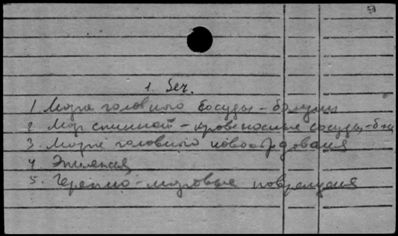 1. Ser.
1 Мозга головного сосуды - болезни
2 Мозг спинной - кровеносные сосуды - б-ни
3 Мозга головного новообразования
4 Эпилепсия
5. Черепно-мозговые повреждения